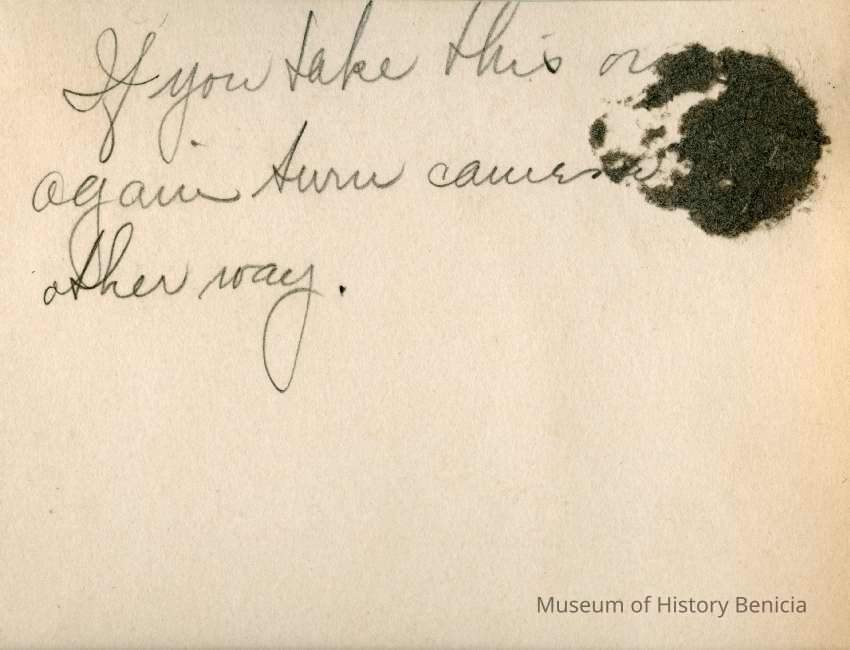 If you take this
again turn camera
other way.
Museum of History Benicia